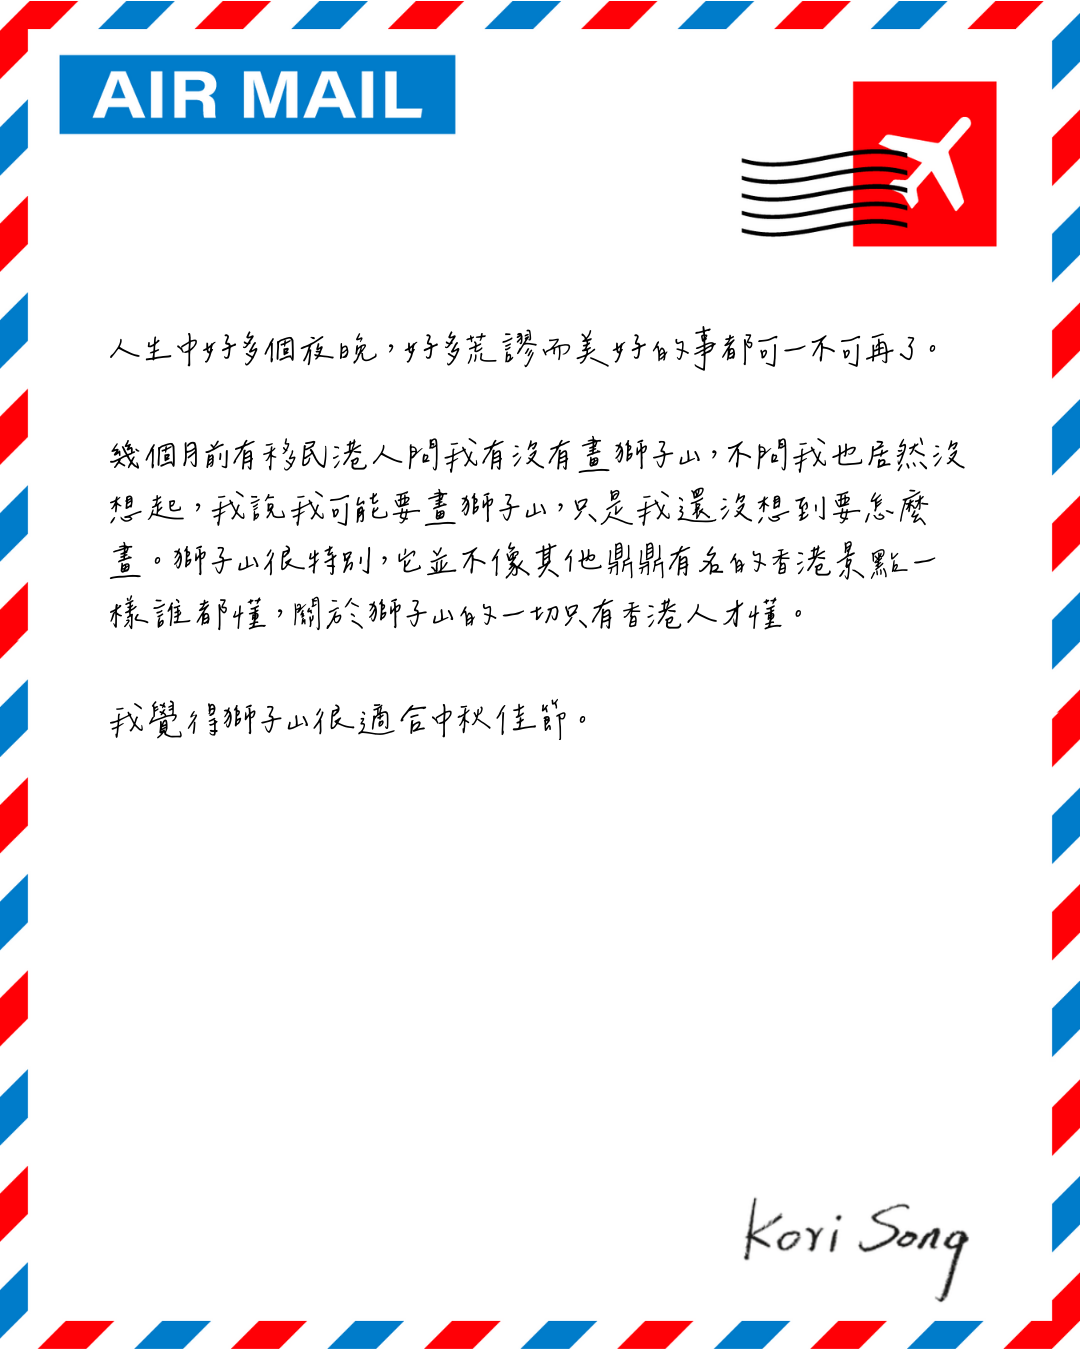 AIR MAIL
人生中好多個夜晚，好多荒謬而美好的事都可一不可再了。
幾個月前有移民港人問我有沒有畫獅子山，不問我也居然沒
想起，我說我可能要畫獅子山，只是我還沒想到要怎麼
畫。獅子山很特別，它並不像其他鼎鼎有名的香港景點一
樣誰都懂，關於獅子山的一切只有香港人才懂。
我覺得獅子山很適合中秋佳節。
Kori Song